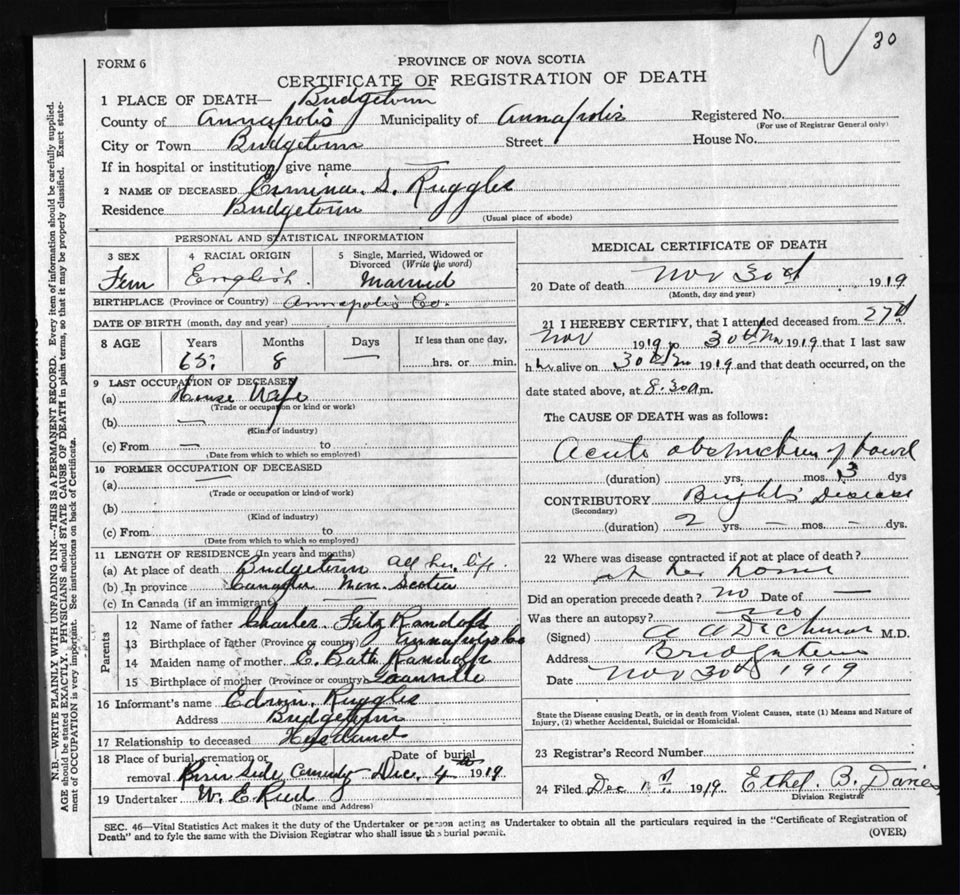 30
FORM 6
PROVINCE OF NOVA SCOTIA
CERTIFICATE OF REGISTRATION OF DEATH
1 PLACE OF DEATH— Bridgetown
County of Annapolis Municipality of Annapolis Registered No.
(For use of Registrar General only)
City or Town Bridgetown Street House No.
If in hospital or institution, give name —
2 NAME OF DECEASED Ermina. S. Ruggles
Residence Bridgetown
(Usual place of abode)
PERSONAL AND STATISTICAL INFORMATION
3 SEX 4 RACIAL ORIGIN 5 Single, Married, Widowed or Divorced (Write the word)
Fem English. Married
BIRTHPLACE (Province or Country) Annapolis Co.
DATE OF BIRTH (month, day and year)
8 AGE Years Months Days If less than one day,
65 8 — hrs. or min.
9 LAST OCCUPATION OF DECEASED
(a) House Wife
(Trade or occupation or kind or work)
(b) —
(Kind of industry)
(c) From — to
(Date from which to which so employed)
10 FORMER OCCUPATION OF DECEASED
(a) —
(Trade or occupation or kind of work)
(b)
(Kind of industry)
(c) From to
(Date from which to which so employed)
11 LENGTH OF RESIDENCE (In years and months)
(a) At place of death Bridgetown all her life.
(b) In province Nova Scotia
(c) In Canada (if an immigrant) —
Parents
12 Name of father Charles Fitz Randolph
13 Birthplace of father (Province or country) Annapolis Co
14 Maiden name of mother E. Bath Randolph
15 Birthplace of mother (Province or country)
16 Informant's name Edwin Ruggles
Address Bridgetown
17 Relationship to deceased Husband
18 Place of burial, cremation or removal River Side Cemetery Date of burial Dec. 4th 1919
19 Undertaker W. E. Reed
(Name and Address)
MEDICAL CERTIFICATE OF DEATH
20 Date of death Nov 30th 1919
(Month, day and year)
21 I HEREBY CERTIFY, that I attended deceased from 27th
Nov 1919 to 30th Nov 1919 that I last saw
her alive on 30th Nov 1919 and that death occurred, on the
date stated above, at 8.30 a m.
The CAUSE OF DEATH was as follows:
Acute obstruction of bowel
(duration) yrs. mos. 3 dys
CONTRIBUTORY Brights Disease
(Secondary)
(duration) 2 yrs. — mos. — dys.
22 Where was disease contracted if not at place of death?
at her home
Did an operation precede death? no Date of —
Was there an autopsy? no
(Signed) M.D.
Address Bridgetown
Date Nov 30th 1919
State the Disease causing Death, or in death from Violent Causes, state (1) Means and Nature of
Injury, (2) whether Accidental, Suicidal or Homicidal.
23 Registrar's Record Number
24 Filed Dec 1st 1919. Ethel. B. Davies
Division Registrar
SEC. 46—Vital Statistics Act makes it the duty of the Undertaker or person acting as Undertaker to obtain all the particulars required in the "Certificate of Registration of
Death" and to fyle the same with the Division Registrar who shall issue the burial permit.
(OVER)
N.B.—WRITE PLAINLY WITH UNFADING INK—THIS IS A PERMANENT RECORD. Every item of information should be carefully supplied.
AGE should be stated EXACTLY. PHYSICIANS should STATE CAUSE OF DEATH in plain terms, so that it may be properly classified. Exact state-
ment of OCCUPATION is very important. See instructions on back of Certificate.